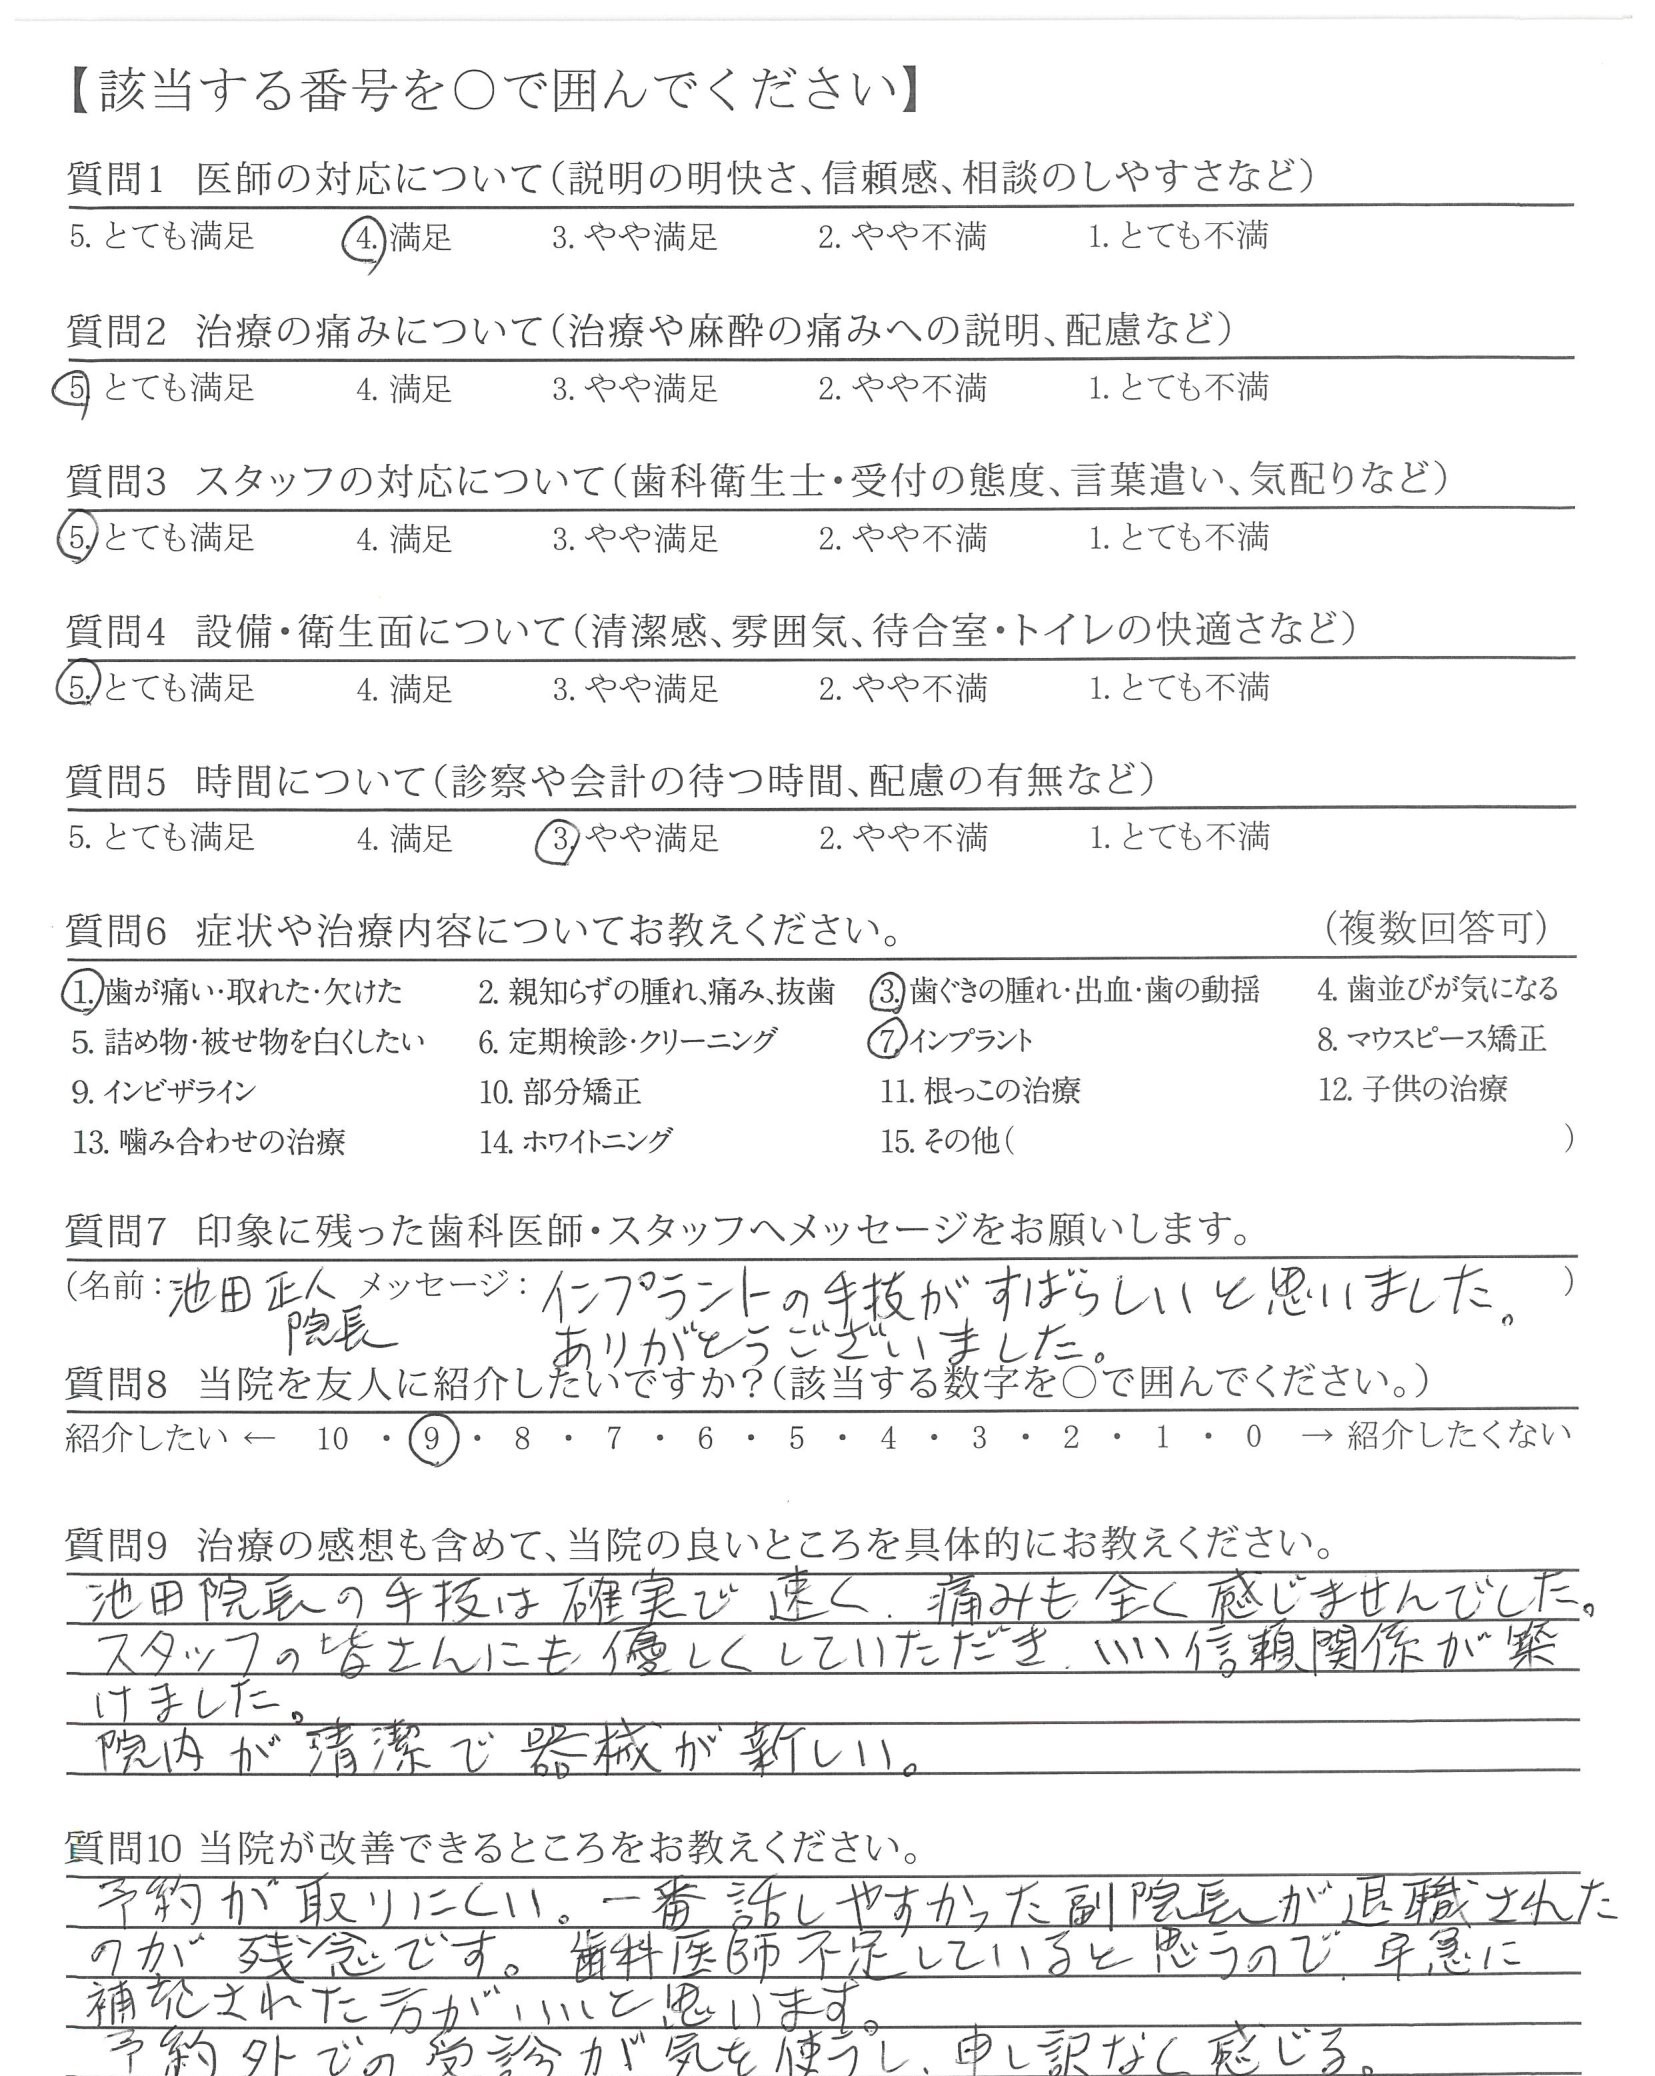 【該当する番号を○で囲んでください】
質問1 医師の対応について(説明の明快さ、信頼感、相談のしやすさなど)
5. とても満足 4. 満足 3. やや満足 2. やや不満 1. とても不満
質問2 治療の痛みについて(治療や麻酔の痛みへの説明、配慮など)
5. とても満足 4. 満足 3. やや満足 2. やや不満 1. とても不満
質問3 スタッフの対応について(歯科衛生士・受付の態度、言葉遣い、気配りなど)
5. とても満足 4. 満足 3. やや満足 2. やや不満 1. とても不満
質問4 設備・衛生面について(清潔感、雰囲気、待合室・トイレの快適さなど)
5. とても満足 4. 満足 3. やや満足 2. やや不満 1. とても不満
質問5 時間について(診察や会計の待つ時間、配慮の有無など)
5. とても満足 4. 満足 3. やや満足 2. やや不満 1. とても不満
質問6 症状や治療内容についてお教えください。 (複数回答可)
1. 歯が痛い・取れた・欠けた 2. 親知らずの腫れ、痛み、抜歯 3. 歯ぐきの腫れ・出血・歯の動揺 4. 歯並びが気になる
5. 詰め物・被せ物を白くしたい 6. 定期検診・クリーニング 7. インプラント 8. マウスピース矯正
9. インビザライン 10. 部分矯正 11. 根っこの治療 12. 子供の治療
13. 噛み合わせの治療 14. ホワイトニング 15. その他( )
質問7 印象に残った歯科医師・スタッフへメッセージをお願いします。
(名前：池田 正人 メッセージ：インプラントの手技がすばらしいと思いました。 )
院長 ありがとうございました。
質問8 当院を友人に紹介したいですか？(該当する数字を○で囲んでください。)
紹介したい ← 10 ・ 9 ・ 8 ・ 7 ・ 6 ・ 5 ・ 4 ・ 3 ・ 2 ・ 1 ・ 0 → 紹介したくない
質問9 治療の感想も含めて、当院の良いところを具体的にお教えください。
池田院長の手技は確実で速く、痛みも全く感じませんでした。
スタッフの皆さんにも優しくしていただき、いい信頼関係が築
けました。
院内が清潔で器械が新しい。
質問10 当院が改善できるところをお教えください。
予約が取りにくい。一番話しやすかった副院長が退職された
のが残念です。歯科医師不足していると思うので、早急に
補充された方がいいと思います。
予約外での受診が気を使うし、申し訳なく感じる。